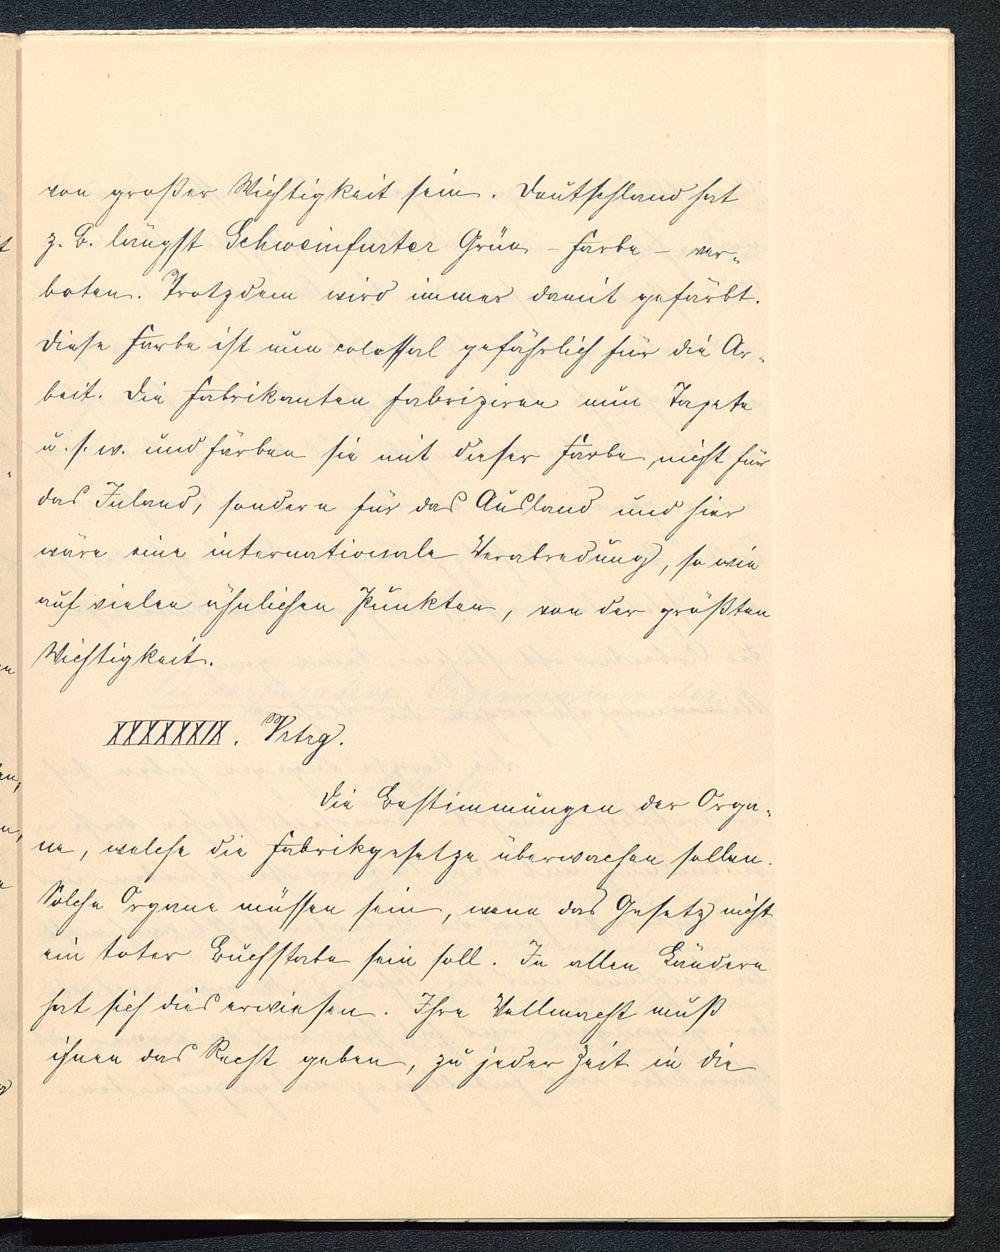 von großer Wichtigkeit sein. Deutschland hat
z. B. längst Schweinfurter Grün – Farbe – ver-
boten. Trotzdem wird immer damit gefärbt.
Diese Farbe ist nun colossal gefährlich für die Ar-
beit. Die Fabrikanten fabriziren nun Tapete
u. s. w. und färben sie mit dieser Farbe, nicht für
das Inland, sondern für das Ausland und hier
wäre eine internationale Verabredung, so wie
auf vielen ähnlichen Punkten, von der größten
Wichtigkeit.
XXXXXXIX. Vrtrg.
Die Bestimmungen der Orga-
ne, welche die Fabrikgesetze überwachen sollen.
Solche Organe müssen sein, wenn das Gesetz nicht
ein toter Buchstabe sein soll. In allen Ländern
hat sich dies erwiesen. Ihre Vollmacht muß
ihnen das Recht geben, zu jeder Zeit in die